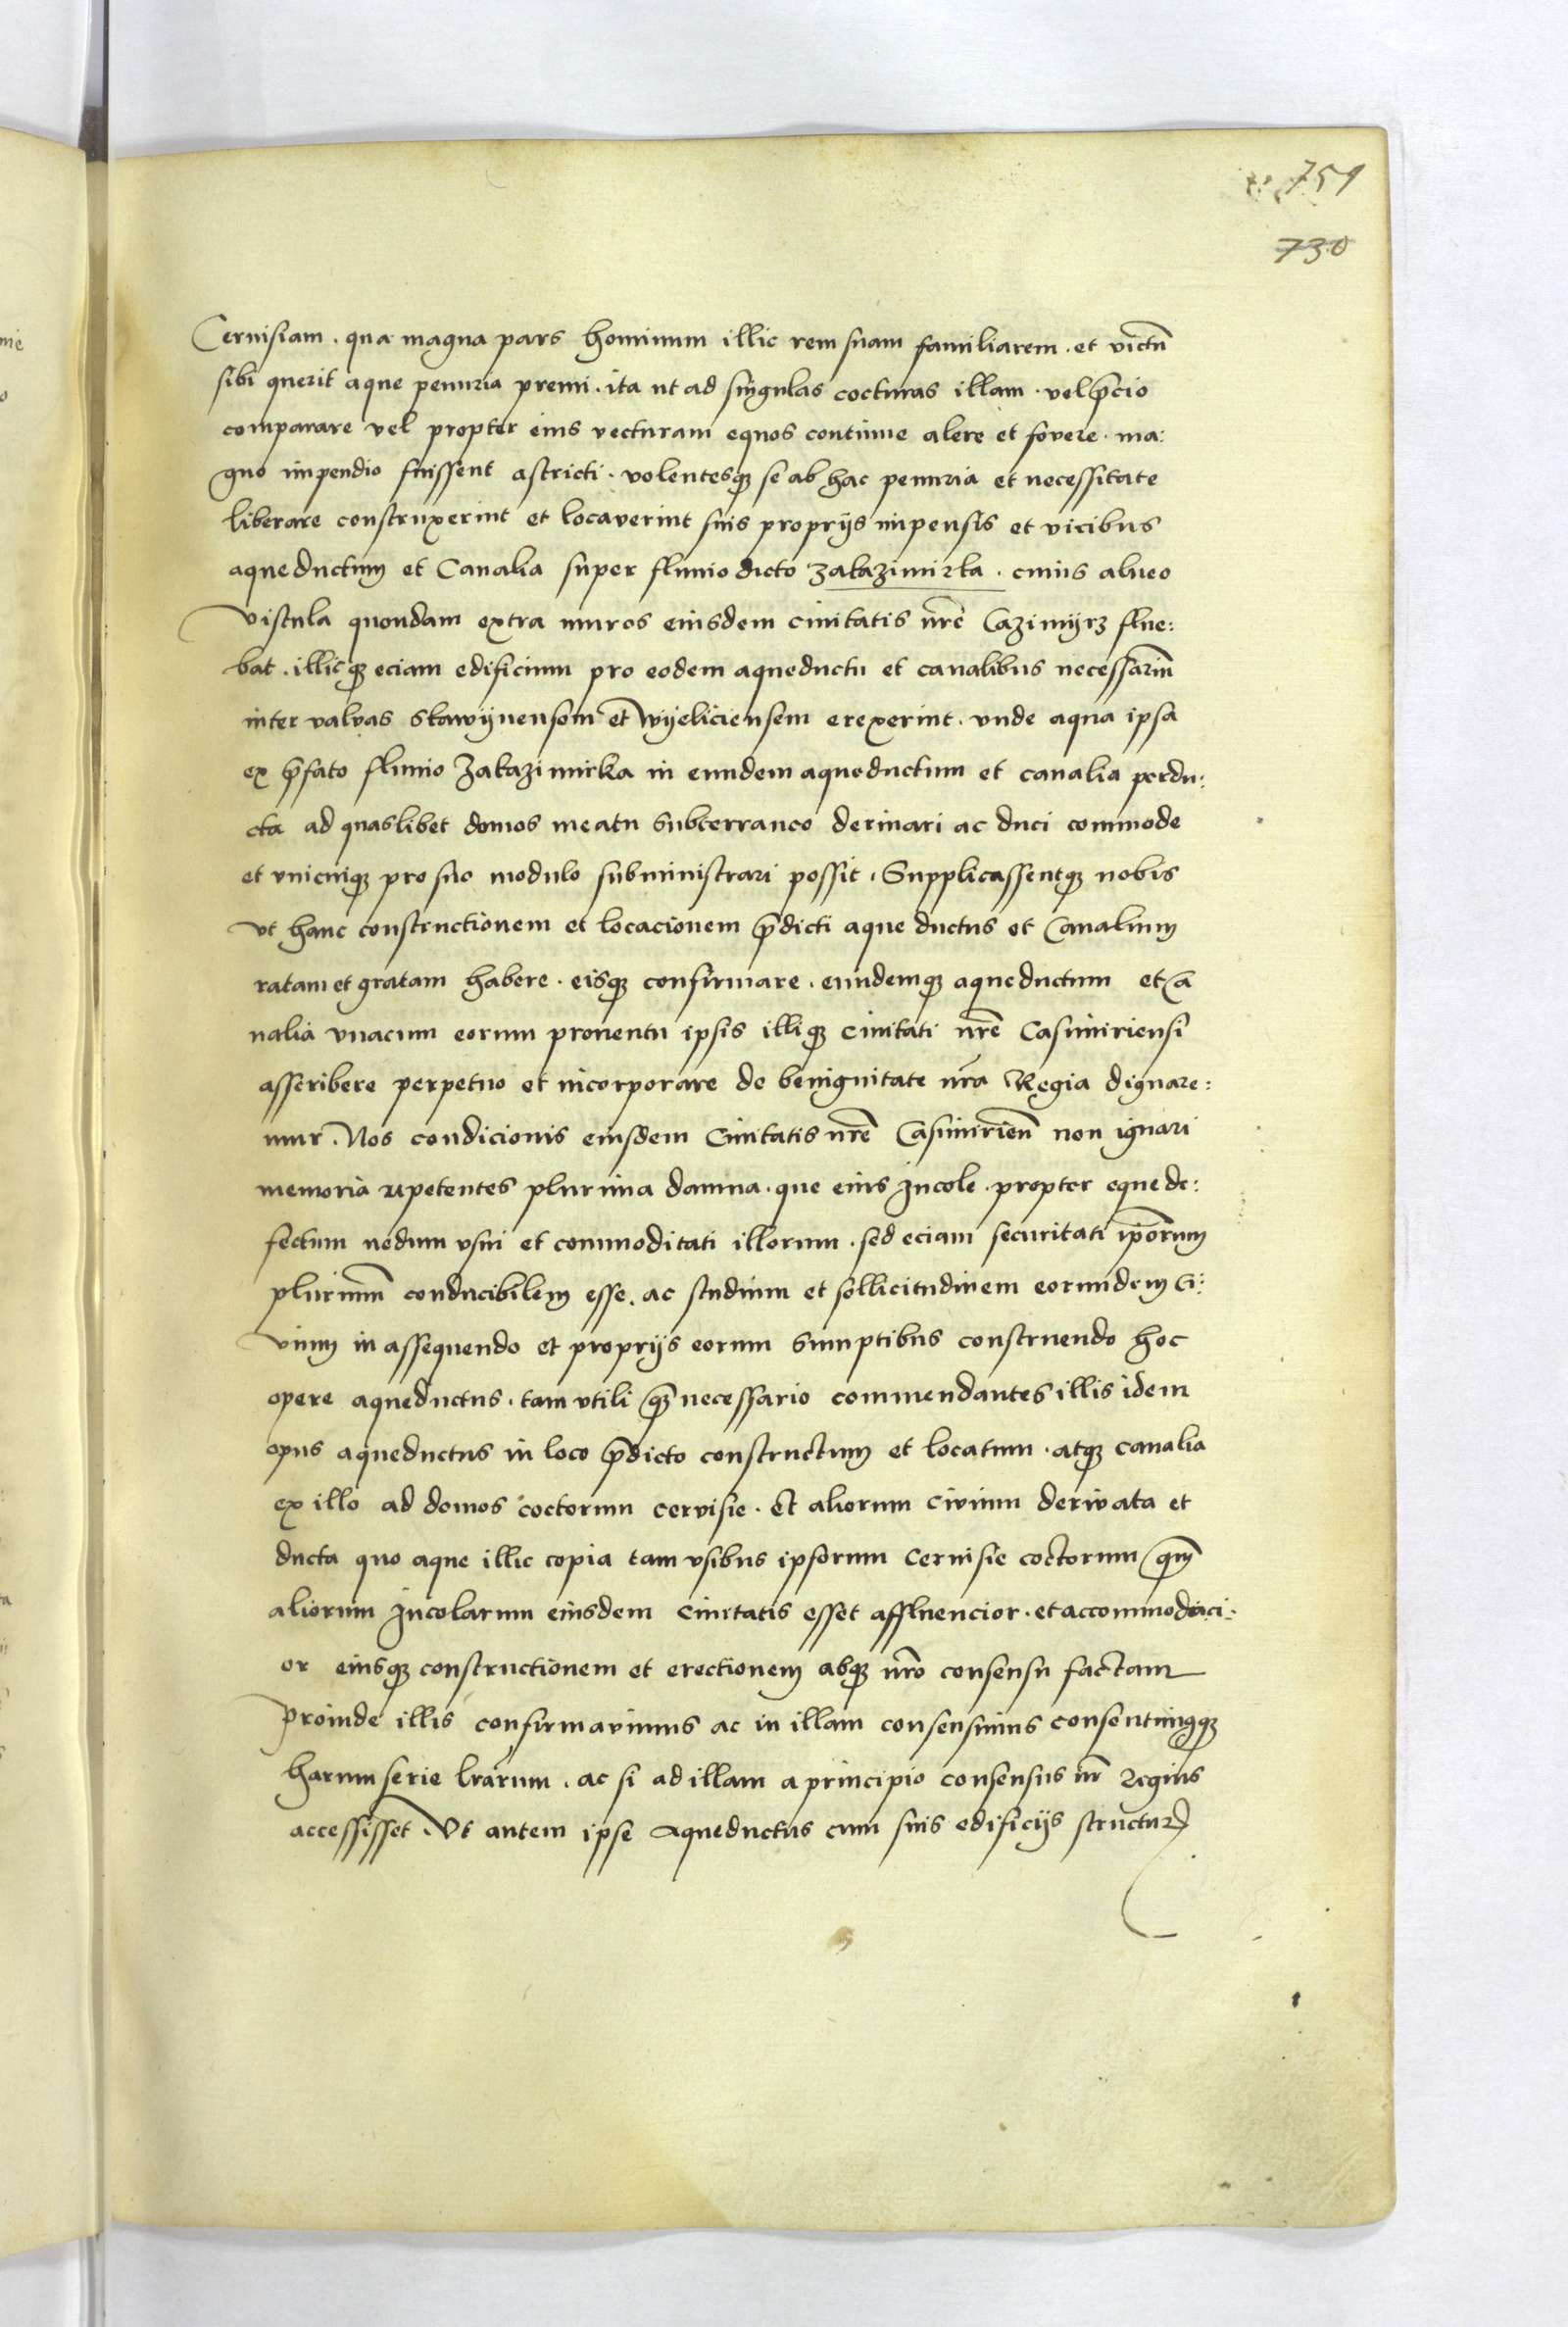 751
730
Ceruisiam . qua magna pars hominum illic rem suam familiarem . et victũ
sibi querit aque penuria premi . ita ut ad singulas cocturas illam . vel p̃cio
comparare vel propter eius vecturam equos continue alere et fovere . ma:
gno impendio fuissent astricti . volentesqꝫ se ab hac penuria et necessitate
liberare construxerint et locaverint suis proprijs impensis et vicibus
aqueductum et Canalia super fluuio dicto Zakazimirka . cuius alueo
Vistula quondam extra muros eiusdem ciuitatis nr̃e Cazimijrz flue:
bat . illicqꝫ eciam edificium pro eodem aqueductu et canalibus necessariũ
inter valvas Skawijnensem et Wijeliciensem erexerint . vnde aqua ipsa
ex p̃fato fluuio Zakazimirka in eundem aqueductum et canalia perdu:
cta ad quaslibet domos meatu subterraneo deriuari ac duci commode
et vnicuiqꝫ pro suo modulo subministrari possit . Supplicassentqꝫ nobis
Vt hanc constructionem et locacionem p̃dicti aque ductus et Canalium
ratam et gratam habere . eisqꝫ confirmare . eundemqꝫ aqueductum et Ca
nalia vnacum eorum prouentu ipsis illiqꝫ ciuitati nr̃e Casimiriensi
asscribere perpetuo et incorporare de benignitate nr̃a Regia dignare:
mur . Nos condicionis eiusdem Ciuitatis nr̃e Casimirien̄ non ignari
memoria repetentes plurima damna . que eius Incole . propter eque de:
fectum nedum vsui et commoditati illorum . sed eciam securitati ip̃orum
plurimũ conducibilem esse . ac studium et sollicitudinem eorundem Ci:
uium in assequendo et proprijs eorum sumptibus construendo hoc
opere aqueductus . tam vtili qꝫ̃ necessario commendantes illis idem
opus aqueductus in loco p̃dicto constructum et locatum . atqꝫ canalia
ex illo ad domos coctorum cervisie . et aliorum civium derivata et
ducta quo aque illic copia tam vsibus ipsorum Ceruisie coctorum qm̃
aliorum Incolarum eiusdem Ciuitatis esset affluencior . et accommodaci:
or eiusqꝫ constructionem et erectionem absqꝫ nr̃o consensu factam
proinde illis confirmavimus ac in illam consensimus consentimusqꝫ
harum serie lrarum . ac si ad illam a principio consensus nr̃ Regius
accessisset . Vt autem ipse aqueductus cum suis edificijs structur̵